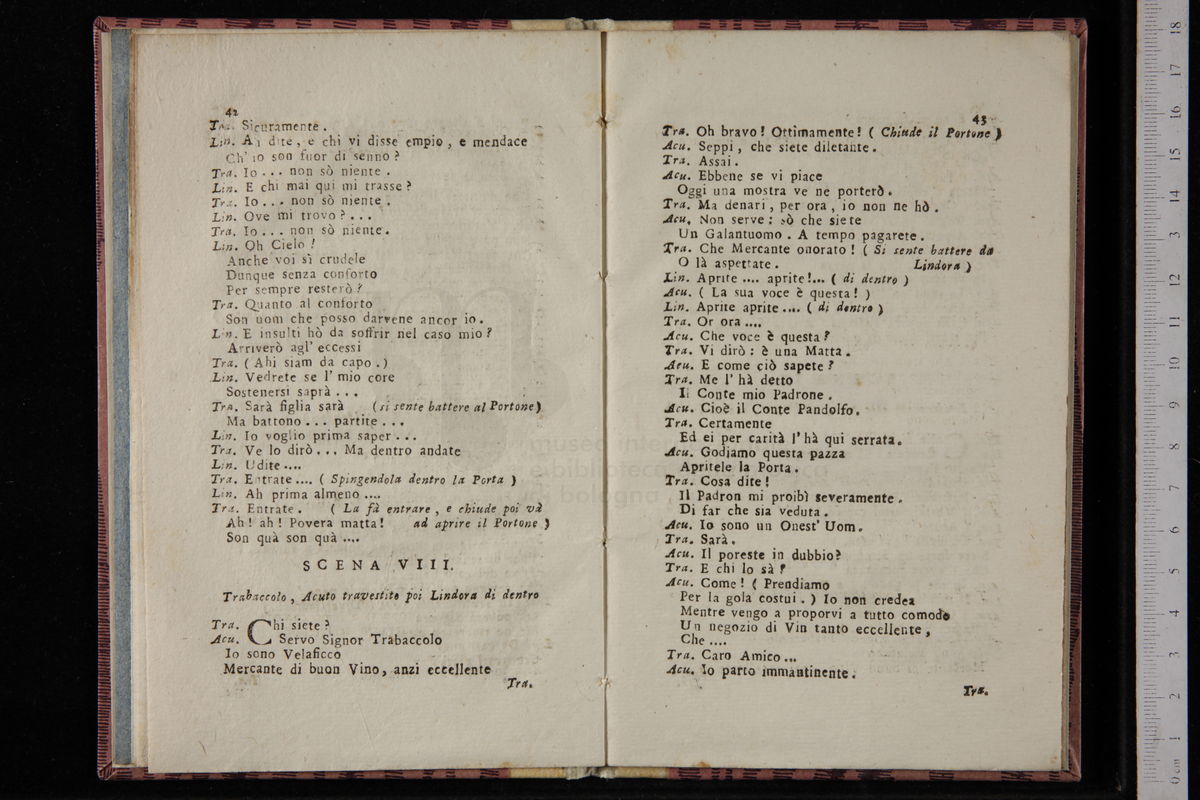 42
Tra. Sicuramente.
Lin. Ah dite, e chi vi disse empio, e mendace
Ch' io son fuor di senno?
Tra. Io... non sò niente.
Lin. E chi mai qui mi trasse?
Tra. Io... non sò niente.
Lin. Ove mi trovo?...
Tra. Io... non sò niente.
Lin. Oh Cielo!
Anche voi sì crudele
Dunque senza conforto
Per sempre resterò?
Tra. Quanto al conforto
Son uom che posso darvene ancor io.
Lin. E insulti hò da soffrir nel caso mio?
Arriverò agl' eccessi
Tra. (Ahi siam da capo.)
Lin. Vedrete se l' mio core
Sostenersi saprà...
Tra. Sarà figlia sarà (si sente battere al Portone)
Ma battono... partite...
Lin. Io voglio prima saper...
Tra. Ve lo dirò... Ma dentro andate
Lin. Udite....
Tra. Entrate.... (Spingendola dentro la Porta)
Lin. Ah prima almeno....
Tra. Entrate. (La fà entrare, e chiude poi và
Ah! ah! Povera matta! ad aprire il Portone)
Son quà son quà....
SCENA VIII.
Trabaccolo, Acuto travestito poi Lindora di dentro
Tra. Chi siete?
Acu. Servo Signor Trabaccolo
Io sono Velaficco
Mercante di buon Vino, anzi eccellente
Tra.
43
Tra. Oh bravo! Ottimamente! (Chiude il Portone)
Acu. Seppi, che siete diletante.
Tra. Assai.
Acu. Ebbene se vi piace
Oggi una mostra ve ne porterò.
Tra. Ma denari, per ora, io non ne hò.
Acu. Non serve: sò che siete
Un Galantuomo. A tempo pagarete.
Tra. Che Mercante onorato! (Si sente battere da
O là aspettate. Lindora)
Lin. Aprite.... aprite!... (di dentro)
Acu. (La sua voce è questa!)
Lin. Aprite aprite.... (di dentro)
Tra. Or ora....
Acu. Che voce è questa?
Tra. Vi dirò: è una Matta.
Acu. E come ciò sapete?
Tra. Me l' hà detto
Il Conte mio Padrone.
Acu. Cioè il Conte Pandolfo.
Tra. Certamente
Ed ei per carità l' hà qui serrata.
Acu. Godiamo questa pazza
Apritele la Porta.
Tra. Cosa dite!
Il Padron mi proibì severamente.
Di far che sia veduta.
Acu. Io sono un Onest' Uom.
Tra. Sarà.
Acu. Il poreste in dubbio?
Tra. E chi lo sà?
Acu. Come! (Prendiamo
Per la gola costui.) Io non credea
Mentre vengo a proporvi a tutto comodo
Un negozio di Vin tanto eccellente,
Che....
Tra. Caro Amico...
Acu. Io parto immantinente.
Tra.